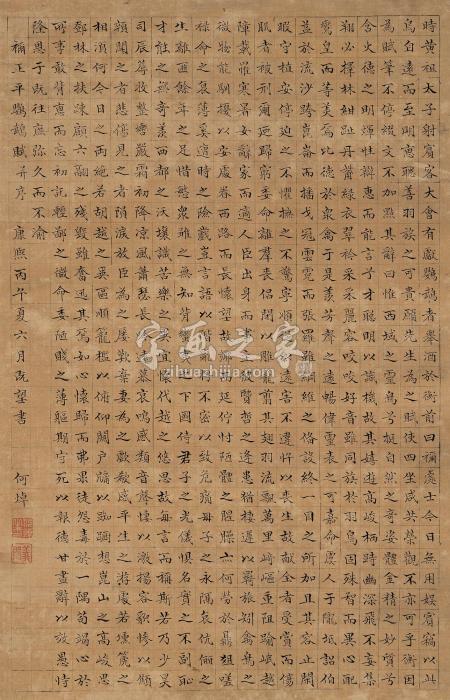 時黃祖太子射賓客大會有獻鸚鵡者舉酒於衡前曰禰處士今日無用娛賓竊以此
鳥自遠而至明惠聰善羽族之可貴願先生為之賦使四坐咸共榮觀不亦可乎衡因
為賦筆不停綴文不加點其辭曰惟西域之靈鳥兮挺自然之奇姿體金精之妙質兮
含火德之明輝性辯惠而能言兮才聰明以識機故其嬉遊高峻栖跱幽深飛不妄集
翔必擇林紺趾丹觜綠衣翠衿采采麗容咬咬好音雖同族於羽毛固殊智而異心配
鸞皇而等美焉比德於衆禽于是羨芳聲之遠暢偉靈表之可嘉命虞人于隴坻詔伯
益於流沙跨崑崙而播弋冠雲霓而張羅雖綱維之備設終一目之所加且其容止閑
暇守植安停逼之不懼撫之不驚寧順從以遠害不違迕以喪生故獻全者受賞而傷
肌者被刑爾迺歸窮委命離羣喪侶閉以雕籠翦其翅羽流飄萬里崎嶇重阻踰岷越
障載罹寒暑女辭家而適人臣出身而事主彼賢哲之逢患猶棲遲以羈旅矧禽鳥之
微物能馴擾以安處眷西路而長懷望故鄉而延佇忖陋體之腥臊亦何勞於鼎俎嗟
祿命之衰薄奚遭時之險巇豈言語以階亂將不密以致危痛母子之永隔哀伉儷之
生離匪餘年之足惜慜衆雛之無知背蠻夷之下國侍君子之光儀懼名實之不副恥
才能之無奇羨西都之沃壤識苦樂之異宜懷代越之悠思故每言而稱斯若乃少昊
司辰蓐收整轡嚴霜初降凉風蕭瑟長吟遠慕哀鳴感類音聲悽以激揚容貌慘以顦
顇聞之者悲傷見之者隕淚放臣為之屢歎棄妻為之歔欷感平生之游處若壎篪之
相須何今日之兩絕若胡越之異區順籠檻以俯仰闚戶牖以踟躕想崑山之高峻思
鄧林之扶疎顧六翮之殘毀雖奮迅其焉如心懷歸而弗果徒怨毒於一隅苟竭心於
所事敢背惠而忘初託輕鄙之微命委陋賤之薄軀期守死以報德甘盡辭以效愚恃
隆恩于既往庶彌久而不渝
禰正平鸚鵡賦并序 康熙丙午夏六月既望書 何焯
字画之家
www.zihuazhijia.com